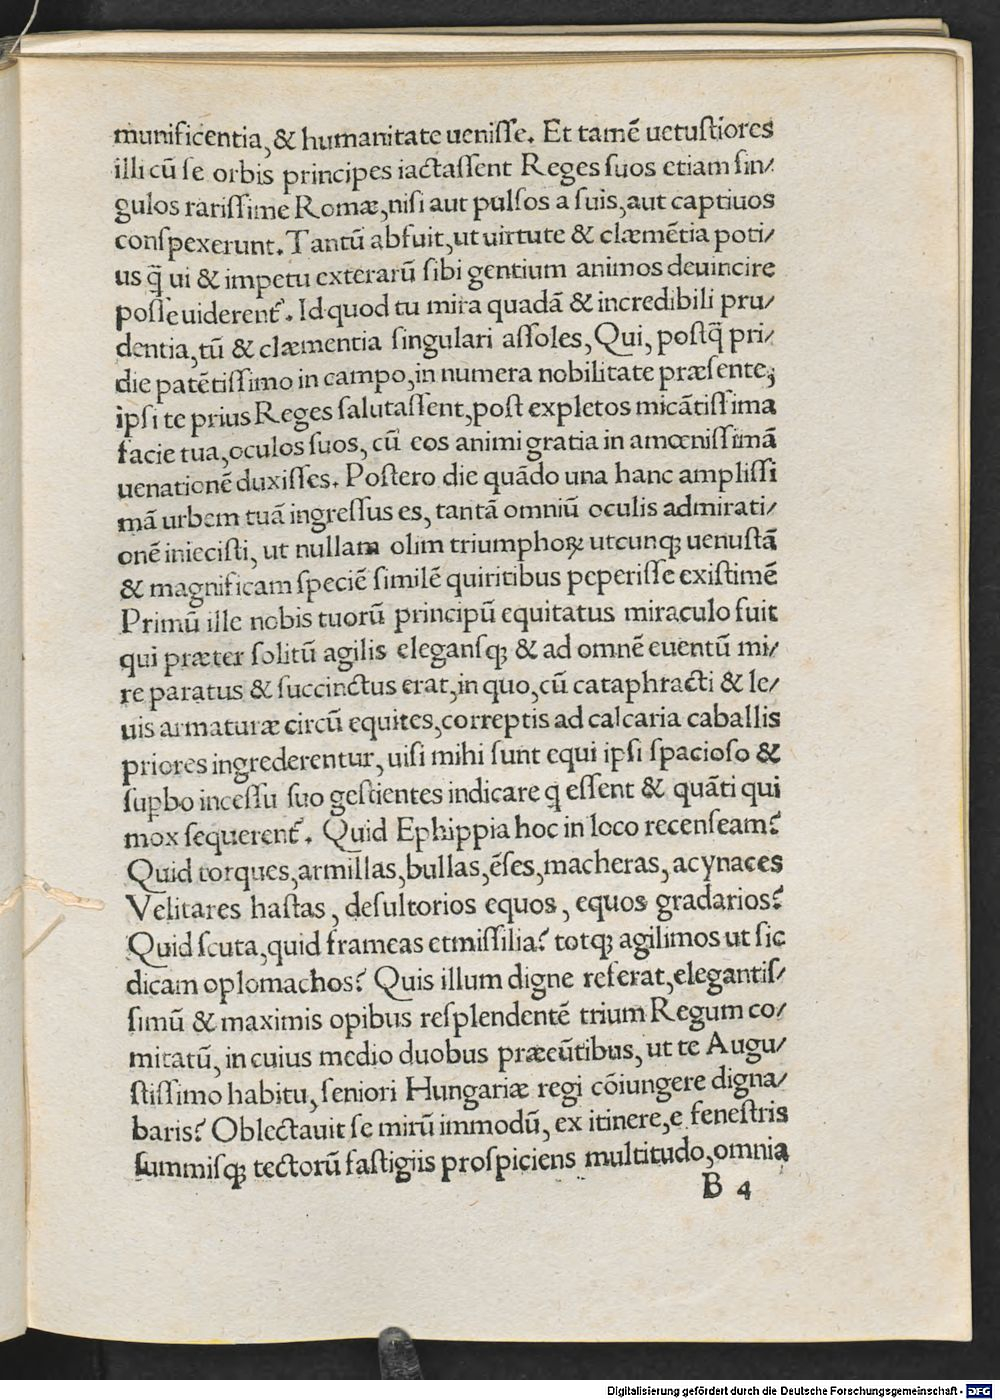 munificentia, & humanitate ueniſſe. Et tamē uetuſtiores
illi cū ſe orbis principes iactaſſent Reges ſuos etiam ſin⸗
gulos rariſſime Romæ, niſi aut pulſos a ſuis, aut captiuos
conſpexerunt. Tantū abfuit, ut uirtute & clæmētia poti⸗
us q̄ ui & impetu exterarū ſibi gentium animos deuincire
poſſe uiderent᷑. Id quod tu mira quadā & incredibili pru⸗
dentia, tū & clæmentia ſingulari aſſoles, Qui, poſtq̄ pri⸗
die patētiſſimo in campo, in numera nobilitate præſente,
ipſi te prius Reges ſalutaſſent, poſt expletos micātiſſima
facie tua, oculos ſuos, cū eos animi gratia in amœniſſimā
uenationē duxiſſes. Poſtero die quādo una hanc ampliſſi
mā urbem tuā ingreſſus es, tantā omniū oculis admirati⸗
onē inieciſti, ut nullam olim triumphoꝝ utcunqꝫ uenuſtā
& magnificam ſpeciē ſimilē quiritibus peperiſſe exiſtimē
Primū ille nobis tuorū principū equitatus miraculo fuit
qui præter ſolitū agilis eleganſqꝫ & ad omnē euentū mi⸗
re paratus & ſuccinctus erat, in quo, cū cataphracti & le⸗
uis armaturæ circū equites, correptis ad calcaria caballis
priores ingrederentur, uiſi mihi ſunt equi ipſi ſpacioſo &
ſuꝑbo inceſſu ſuo geſtientes indicare q̄ eſſent & quāti qui
mox ſequerent᷑. Quid Ephippia hoc in loco recenſeam?
Quid torques, armillas, bullas, ēſes, macheras, acynaces
Velitares haſtas, deſultorios equos, equos gradarios?
Quid ſcuta, quid frameas etmiſſilia? totqꝫ agilimos ut ſic
dicam oplomachos? Quis illum digne referat, elegantiſ⸗
ſimū & maximis opibus reſplendentē trium Regum co⸗
mitatū, in cuius medio duobus præeūtibus, ut te Augu⸗
ſtiſſimo habitu, ſeniori Hungariæ regi cōiungere digna⸗
baris? Oblectauit ſe mirū immodū, ex itinere, e feneſtris
ſummiſqꝫ tectorū faſtigiis proſpiciens multitudo, omnia
B 4
Digitalisierung gefördert durch die Deutsche Forschungsgemeinschaft - DFG